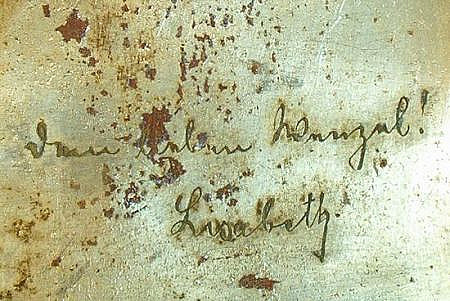 Dem lieben Wenzel!
Lisabeth.